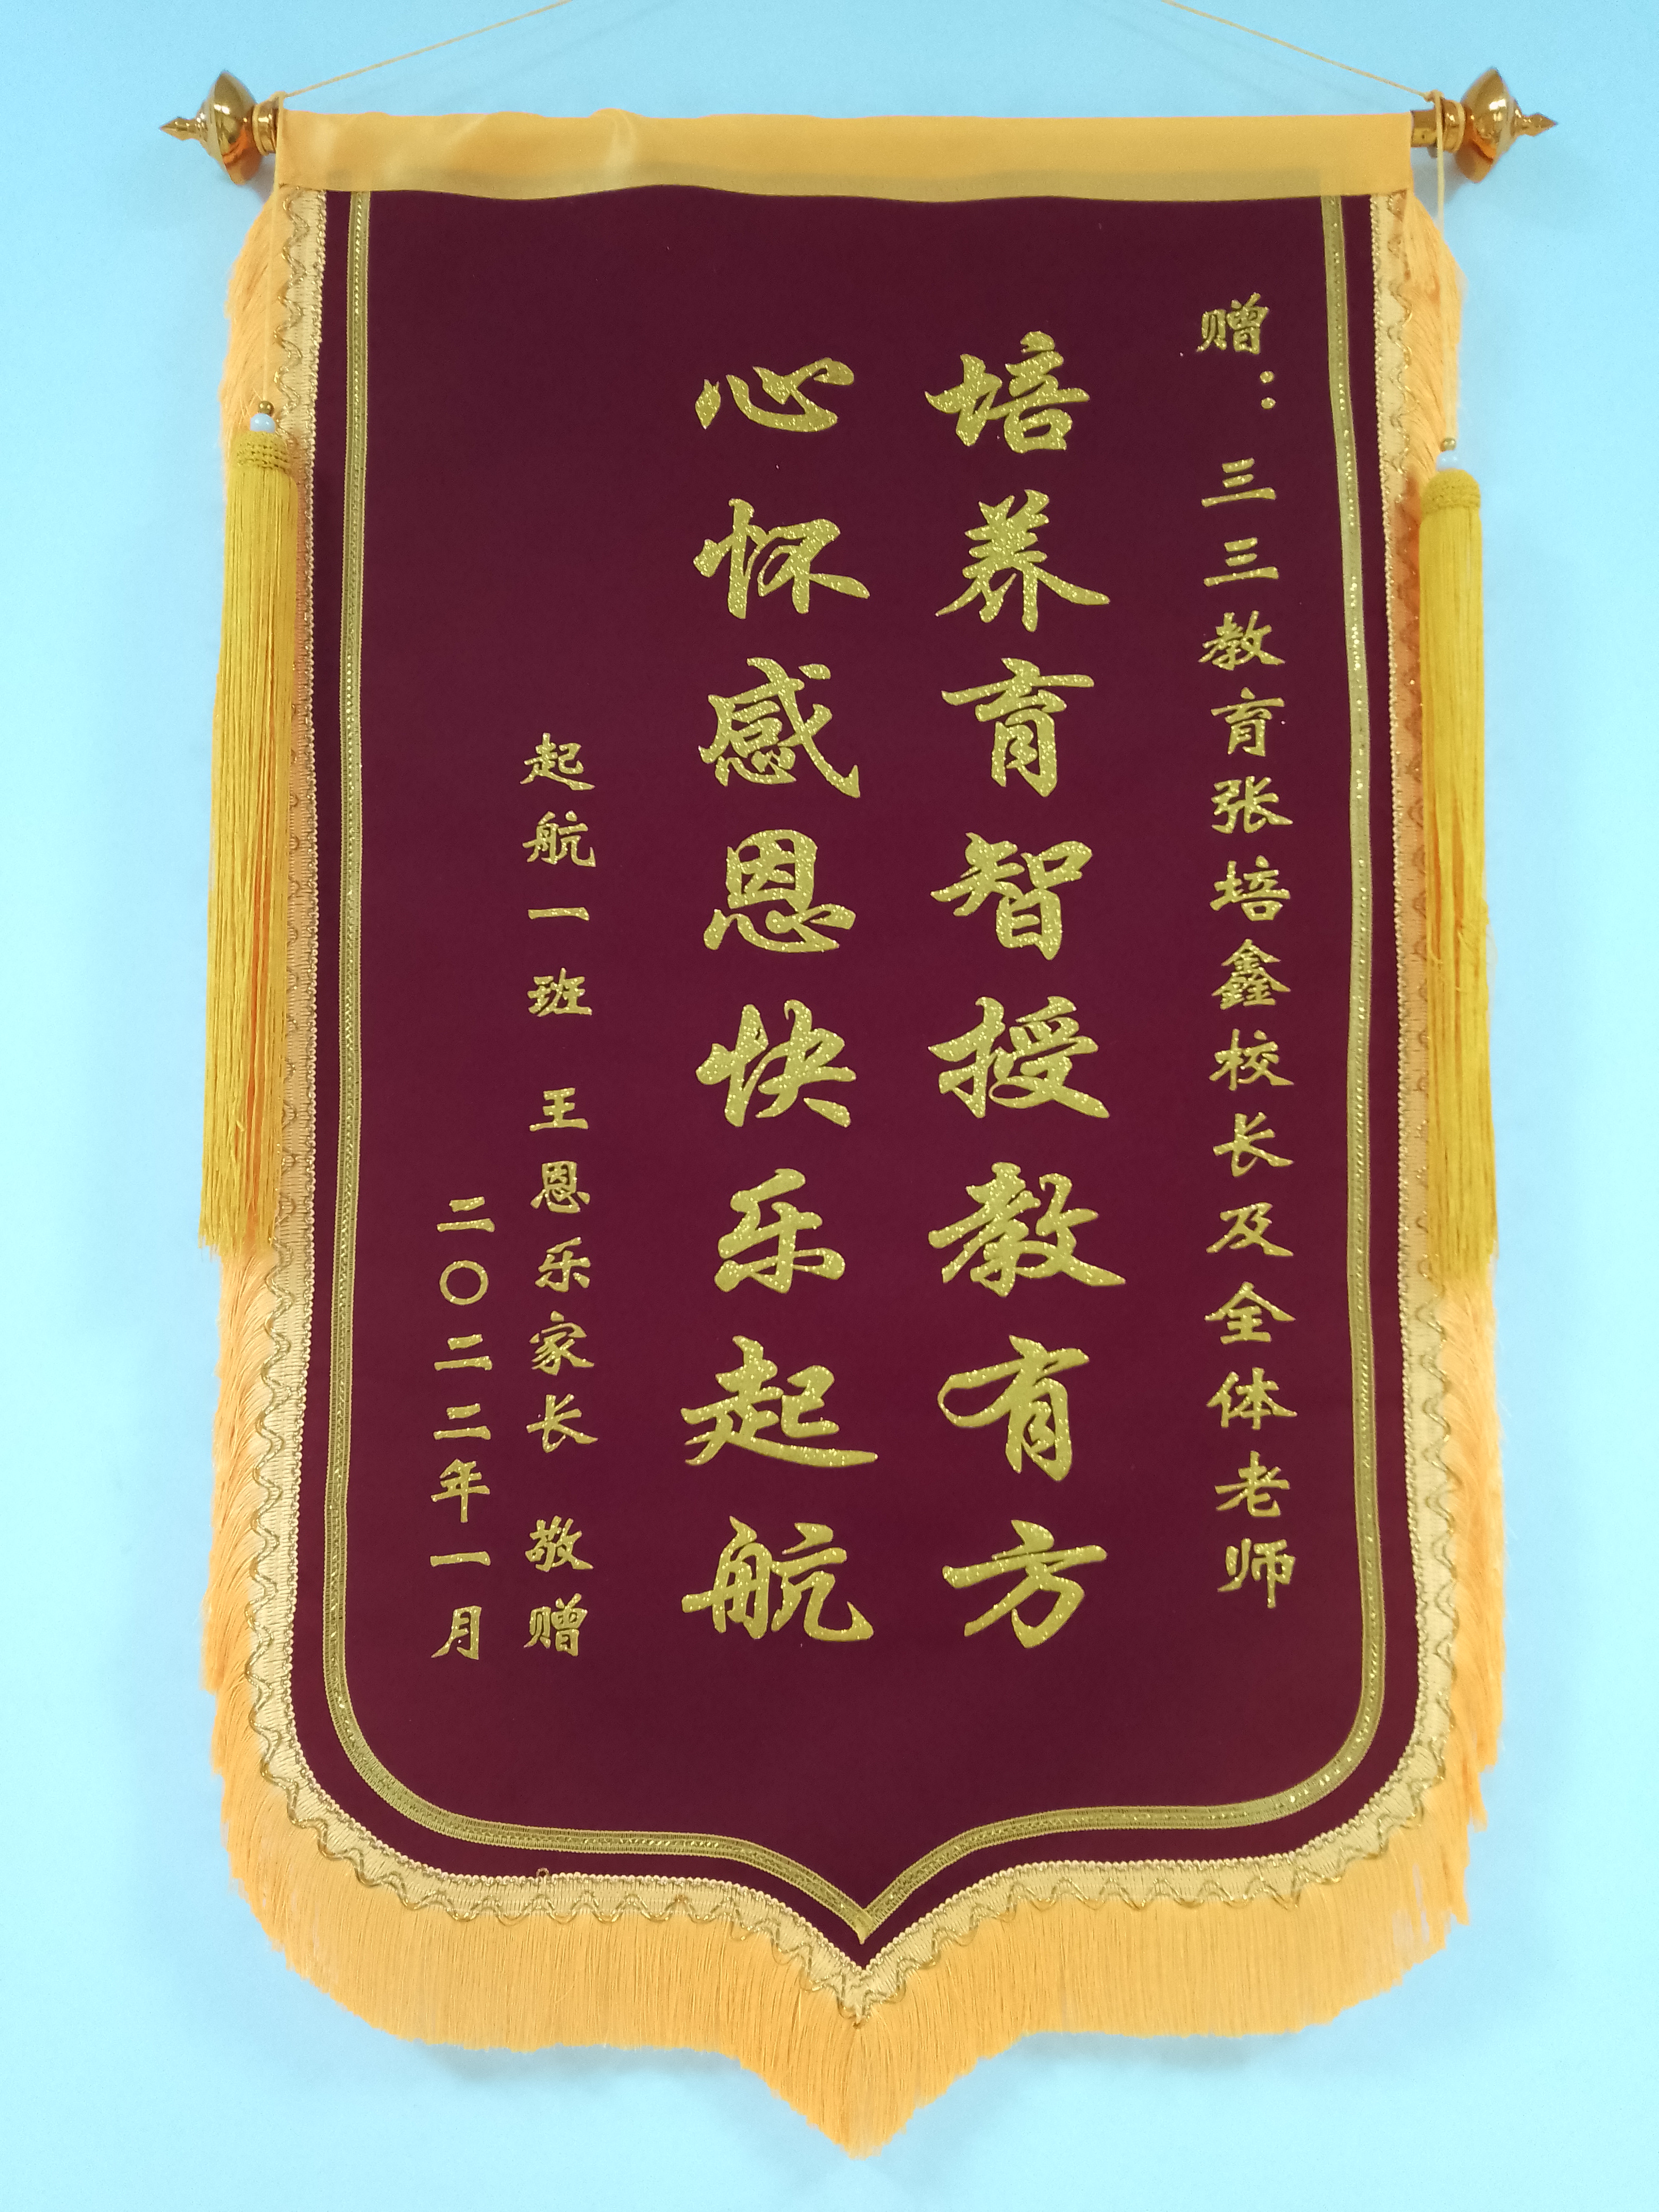 赠：三三教育张培鑫校长及全体老师
培养育智授教有方
心怀感恩快乐起航
起航一班 王恩乐家长 敬赠
二〇二二年一月